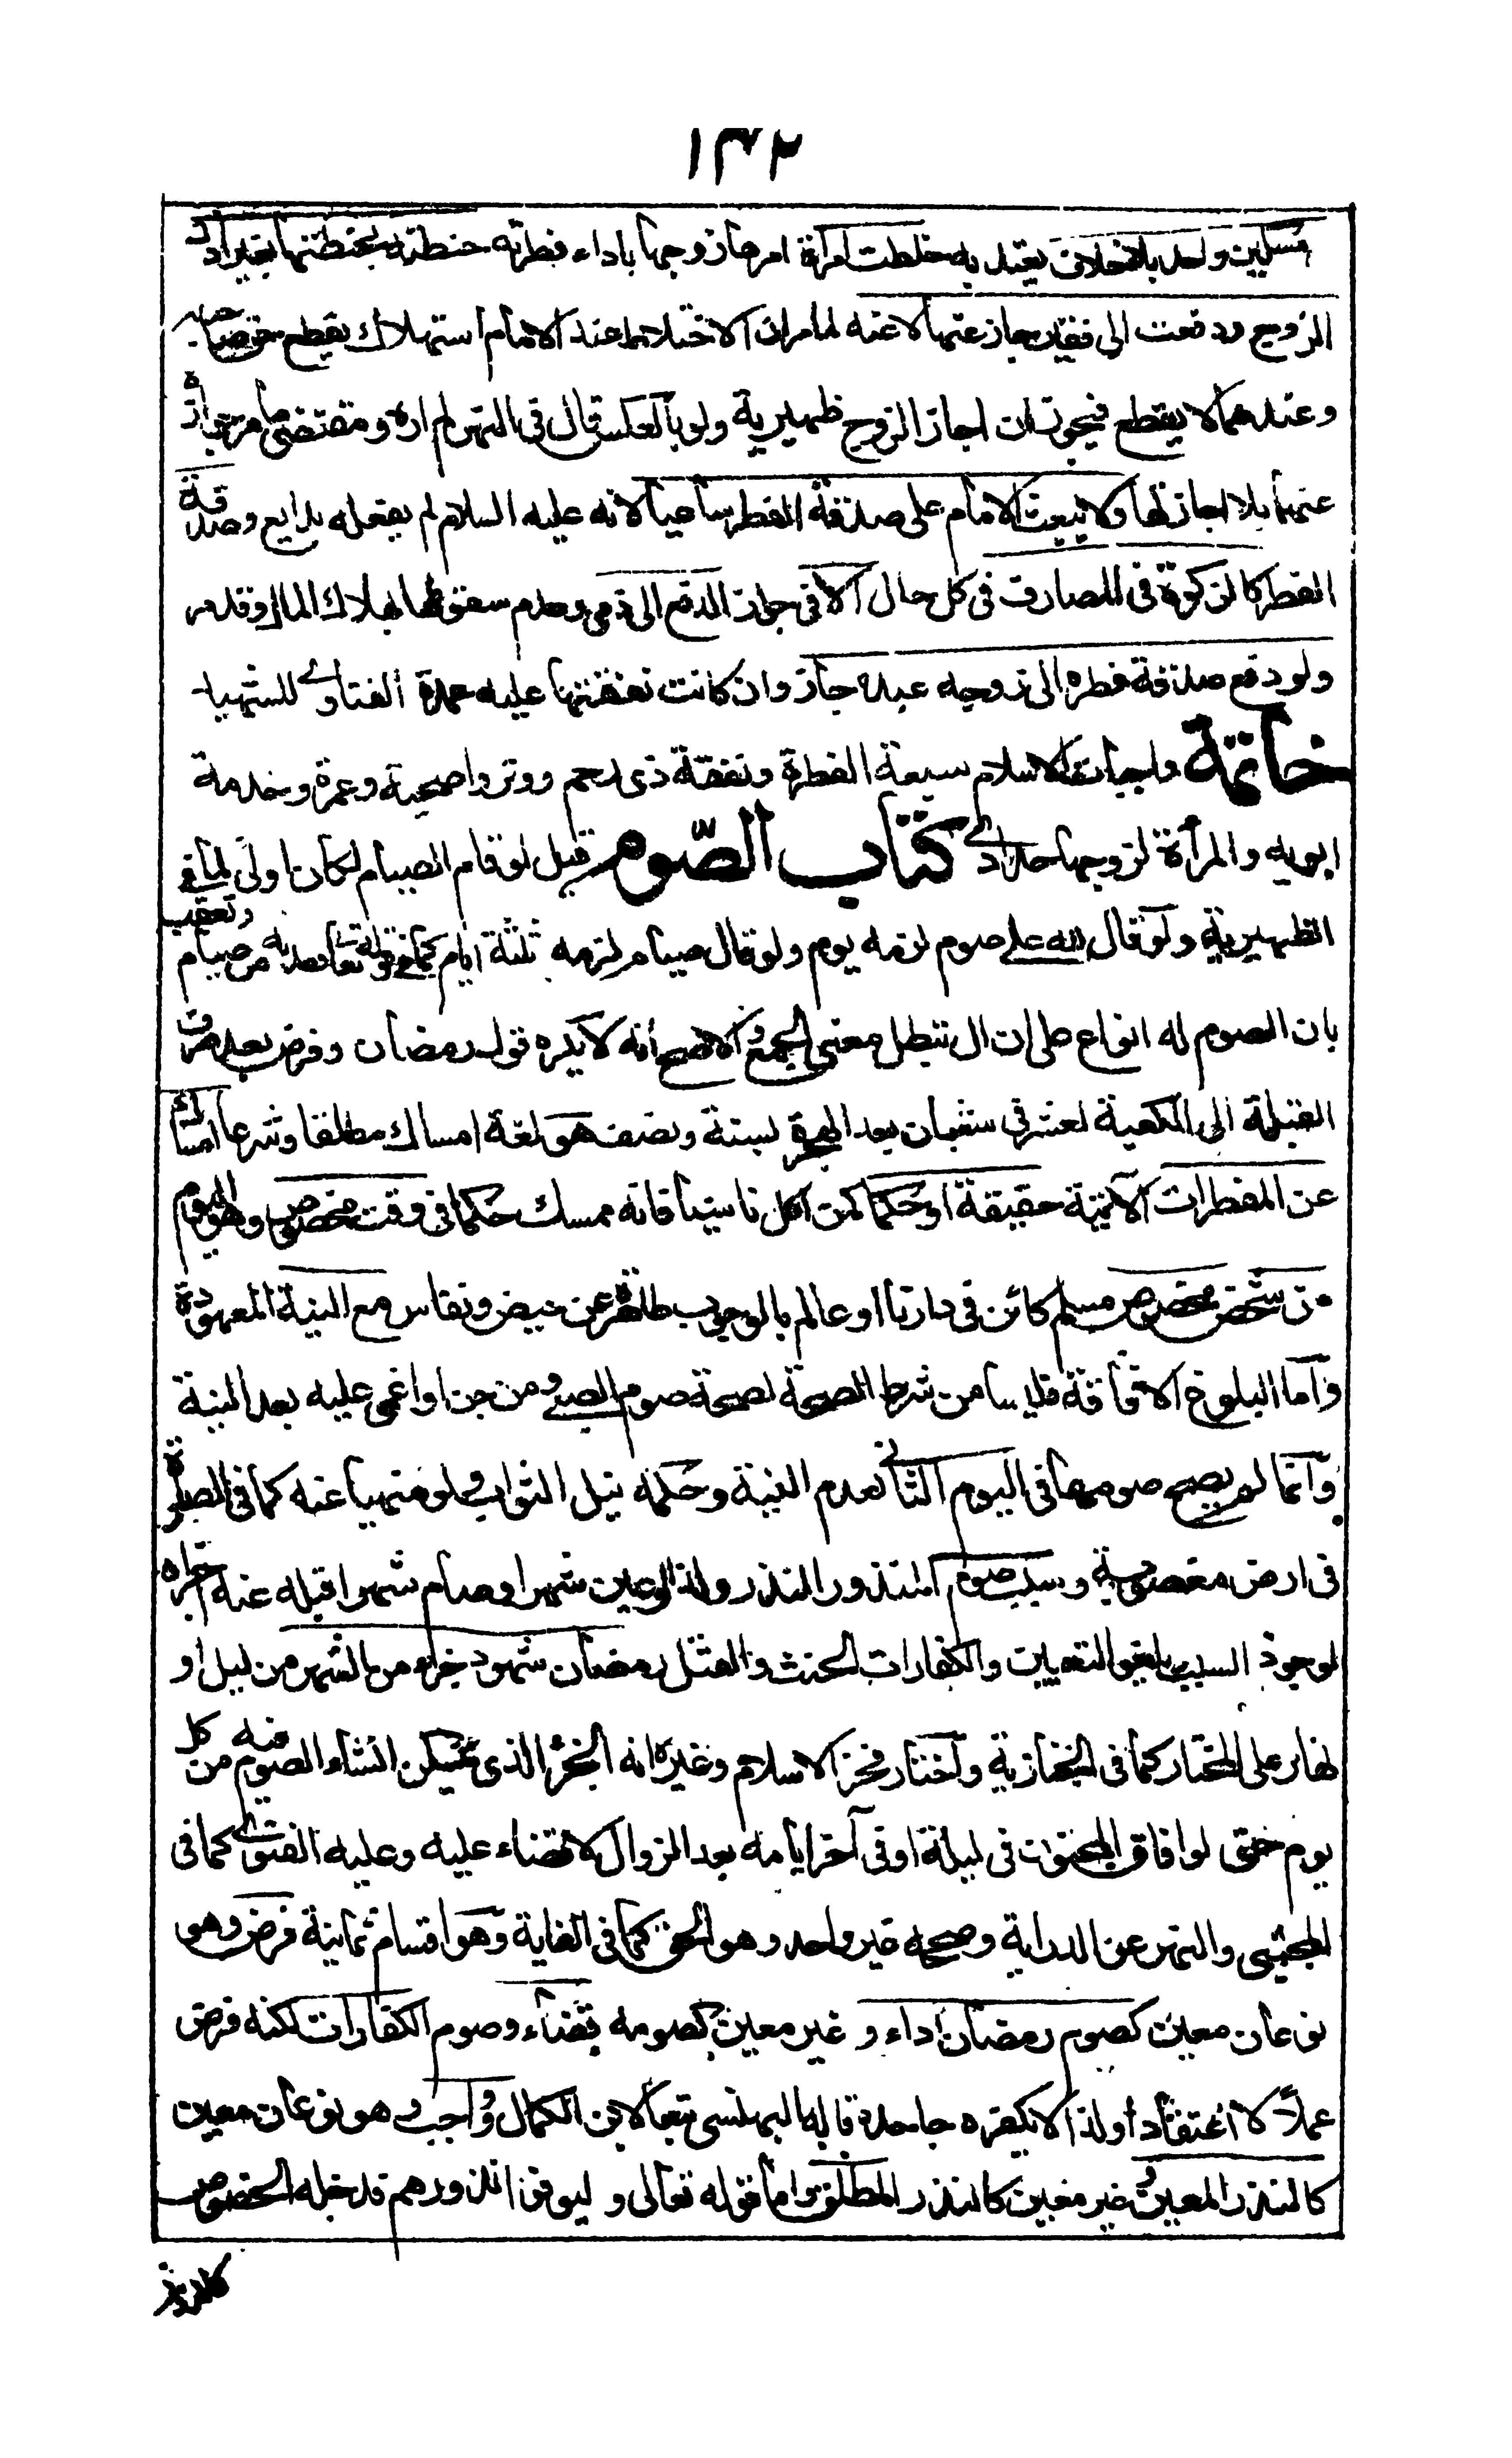 ١٣٢
مسكين واحد بلا خلاف يعتد به خلطت امرأة امرها زوجها باداء فطرته حنطته بحنطتها بغير اذن
الزوج ودفعت الى فقير جاز عنها لا عنه لما مر ان الاختلاط عند الامام استهلاك يقطع حق صاحبه
وعندهما لا يقطع فيجوز ان اجاز الزوج ظهيرية ولو بالعكس قال فى النهر لم اره ومقتضى ما مر جوازه
عنهما بلا اجازتها ولا يبعث الامام على صدقة الفطر ساعيا لانه عليه السلام لم يفعله بدايع وصدقة
الفطر كالزكوة فى المصارف فى كل حال الا فى جواز الدفع الى ذمى وعدم سقوطها بهلاك المال وقد مر
ولو دفع صدقة فطره الى زوجه عبده جاز وان كانت نفقتها عليه عمدة الفتاوى للشهيد
خاتمة واجبات الاسلام سبعة الفطرة ونفقة ذى رحم ووتر واضحية وعمرة وخدمة
ابويه والمرأة لزوجها حدادى كتاب الصّوم قيل لو قام الصيام لكان اولى لما فى
الظهيرية ولو قال لله على صوم لزمه يوم ولو قال صيام لزمه ثلثة ايام كما فى قوله تعا ففدية من صيام وتعقب
بان الصوم له انواع على ان ال تبطل معنى الجمع والاصح أنه لا يكره قول رمضان وفرض بعد صرف
القبلة الى الكعبة لعشر فى شعبان بعد الهجرة بسنة ونصف هو لغة امساك مطلقا وشرعا امساك
عن المفطرات الآتية حقيقة او حكما كمن اكل ناسيا فانه ممسك حكما فى وقت مخصوص وهو اليوم
من شخص مخصوص مسلم كائن فى دارنا او عالم بالوجوب طاهر عن حيض ونفاس مع النية المعهودة
وأما البلوغ والافاقة فليسا من شرط الصحة لصحة صوم الصبى ومن جن او اغمى عليه بعد النية
وانما لم يصح صومهما فى اليوم الثانى لعدم النية وحكمه نيل الثواب ولو منهيا عنه كما فى الصلوة
فى ارض مغصوبة وسبب صوم المنذور النذر ولذا لو عين شهرا وصام شهرا قبله عنه اجزاه
لوجود السبب ويلغو التعيين والكفارات الحنث والقتل رمضان شهود جزء من الشهر من ليل او
نهار على المختار كما فى الخبازية واختار فخر الاسلام وغيره انه الجزء الذى يمكن انشاء الصوم فيه من كل
يوم حتى لو افاق المجنون فى ليلة او فى آخر ايامه بعد الزوال لا قضاء عليه وعليه الفتوى كما فى
المجتبى والنهر عن الدراية وصححه غير واحد وهو الحق كما فى الغاية وهو اقسام ثمانية فرض وهو
نوعان معين كصوم رمضان اداء و غير معين كصومه قضاء وصوم الكفارات لكنه فرض
عملا لا اعتقادا ولذا لا يكفره جاحده قاله البهنسى تبعا لابن الكمال وواجب وهو نوعان معين
كالنذر المعين وغير معين كالنذر المطلق واما قوله تعالى وليوفوا نذورهم فدخله الخصوص
كالنذر